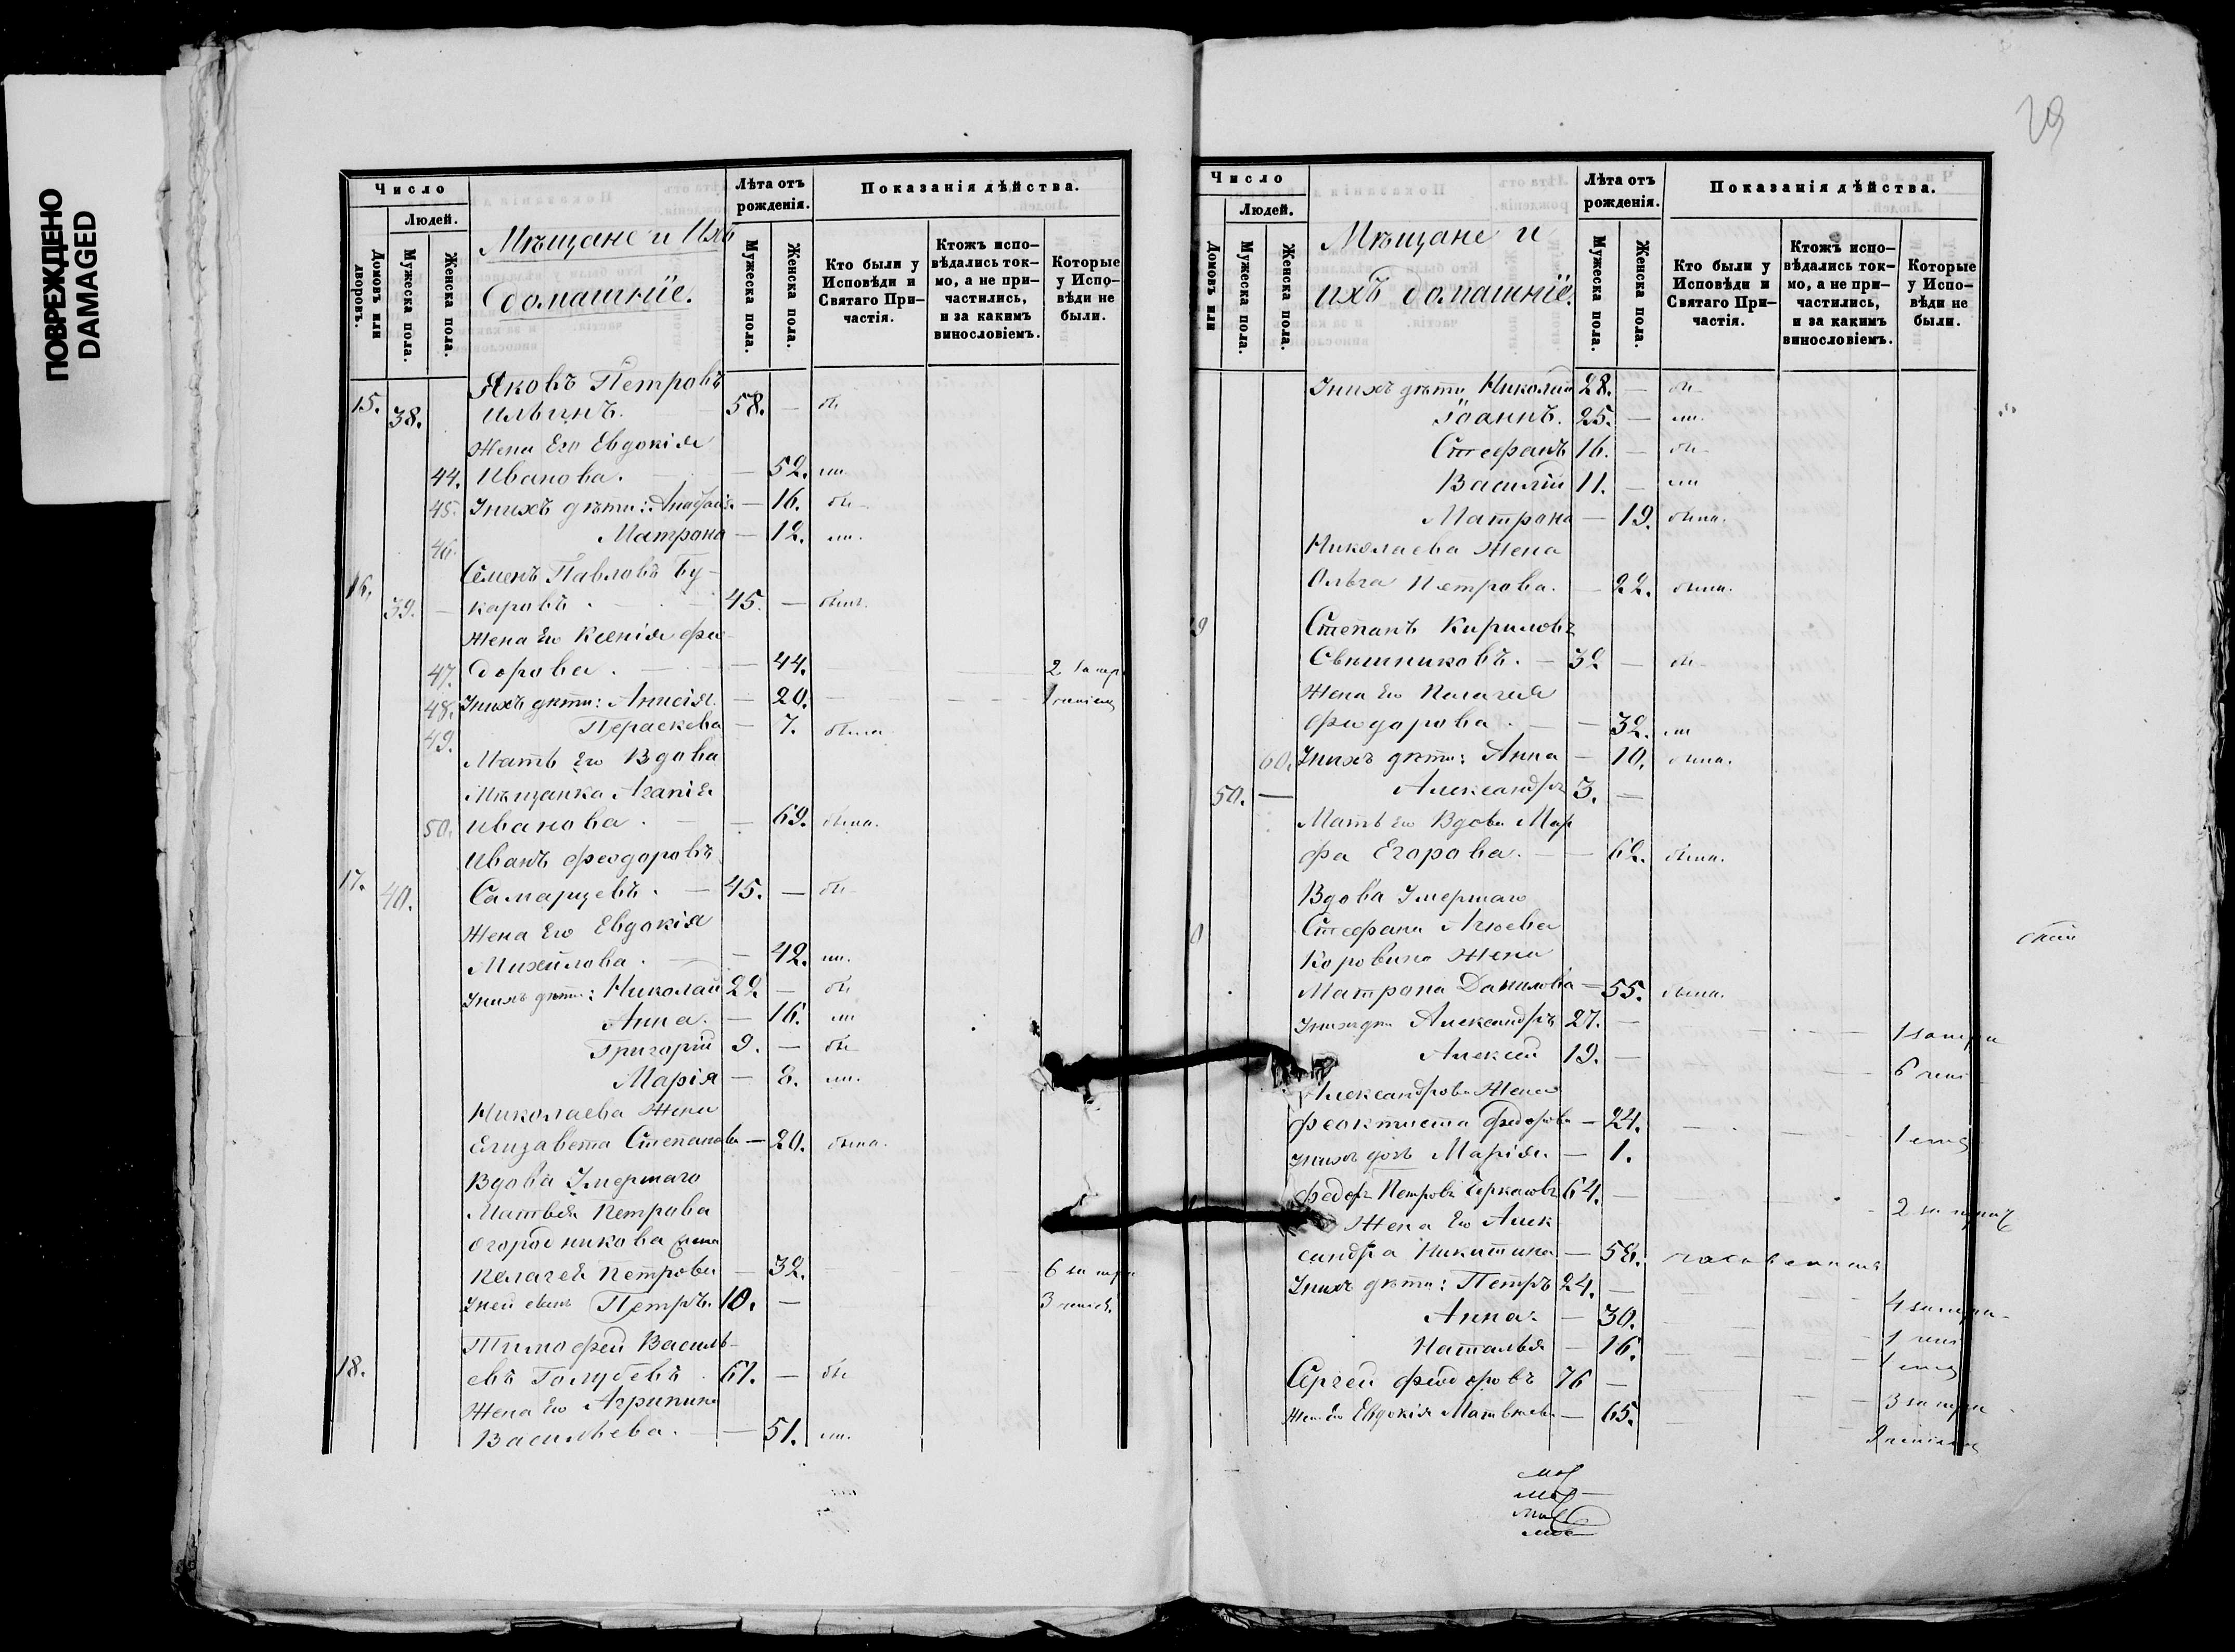 ПОВРЕЖДЕНО
DAMAGED
29
Число
Людей.
Домовъ или дворовъ.
Мужеска пола.
Женска пола.
Мѣщане и Ихъ
домашніе.
Лѣта отъ рожденія.
Мужеска пола.
Женска пола.
Показанія дѣйства.
Кто были у Исповѣди и Святаго Причастія.
Ктожъ исповѣдались токмо, а не причастились, и за какимъ винословіемъ.
Которые у Исповѣди не были.
Яковъ Петровъ
15. 38. Ильинъ. 58. — бы
Жена Его Евдокія
44. Иванова. — 52. ли
45. У нихъ дѣти: — 16. бы
46. Матрона — 12. ли.
Семенъ Павловъ Бу-
16. 39. — каровъ. 45. — былъ.
Жена Его Ксенія Фео-
47. дорова. — 44. 2
48. У нихъ дѣти: Анисія — 20. 1
49. Параскева — 7. была
Мать Его Вдова
Мѣщанка Агапія
50. Иванова. — 69. была.
Иванъ Феодоровъ
17. 40. Самарцевъ. — 45. — бы
Жена Его Евдокія
Михайлова. — 42. ли.
У нихъ дѣти: Николай 22. — бы
Анна. — 16. ли
Григорій 9. — бы
Марія — 8. ли.
Николаева Жена
Елизавета Степанова — 20. была.
Вдова Умершаго
Матвѣя Петрова
Огородникова Жена
Пелагея Петрова — 32. 6
У ней сынъ Петръ. 10. — 3
Тимофей Василь-
18. евъ Голубевъ 61. — бы
Жена Его Агрипина
Васильева. — 51. ли.
Число
Людей.
Домовъ или
Мужеска пола.
Женска пола.
Мѣщане и
ихъ домашніе.
Лѣта отъ рожденія.
Мужеска пола.
Женска пола.
Показанія дѣйства.
Кто были у Исповѣди и Святаго Причастія.
Ктожъ исповѣдались токмо, а не причастились, и за какимъ винословіемъ.
Которые у Исповѣди не были.
У нихъ дѣти Николай 28. — бы
Іоаннъ. 25. — ли.
Стефанъ 16. — бы
Василій 11. — ли
Матрона — 19. была.
Николаева Жена
Ольга Петрова. — 22. была.
9 Степанъ Кириловъ
Свѣшниковъ. — 32 — бы
Жена Его Пелагея
Феодорова. — 32. ли
60. У нихъ дѣти: Анна — 10. была.
50. — Александръ 3. —
Мать Его Вдова Мар
фа Егорова. — 62. была.
Вдова Умершаго
0 Стефана
Коровина Жена
Матрона Данилова — 55. была.
У нихъ дѣти Александръ 27. — 1
Алексѣй 19. — 6
Александрова Жена
Феоктиста Федорова — 24. 1
У нихъ дочь Марія. — 1.
Федоръ Петровъ 64. — 2
Жена Его Алек
сандра Никитина — 58.
У нихъ дѣти: Петръ 24. — 4
Анна. — 30. 1
Наталья — 16. 1
Сергей Феодоровъ 76 — 3
Жена Его Евдокія Матвѣева — 65.